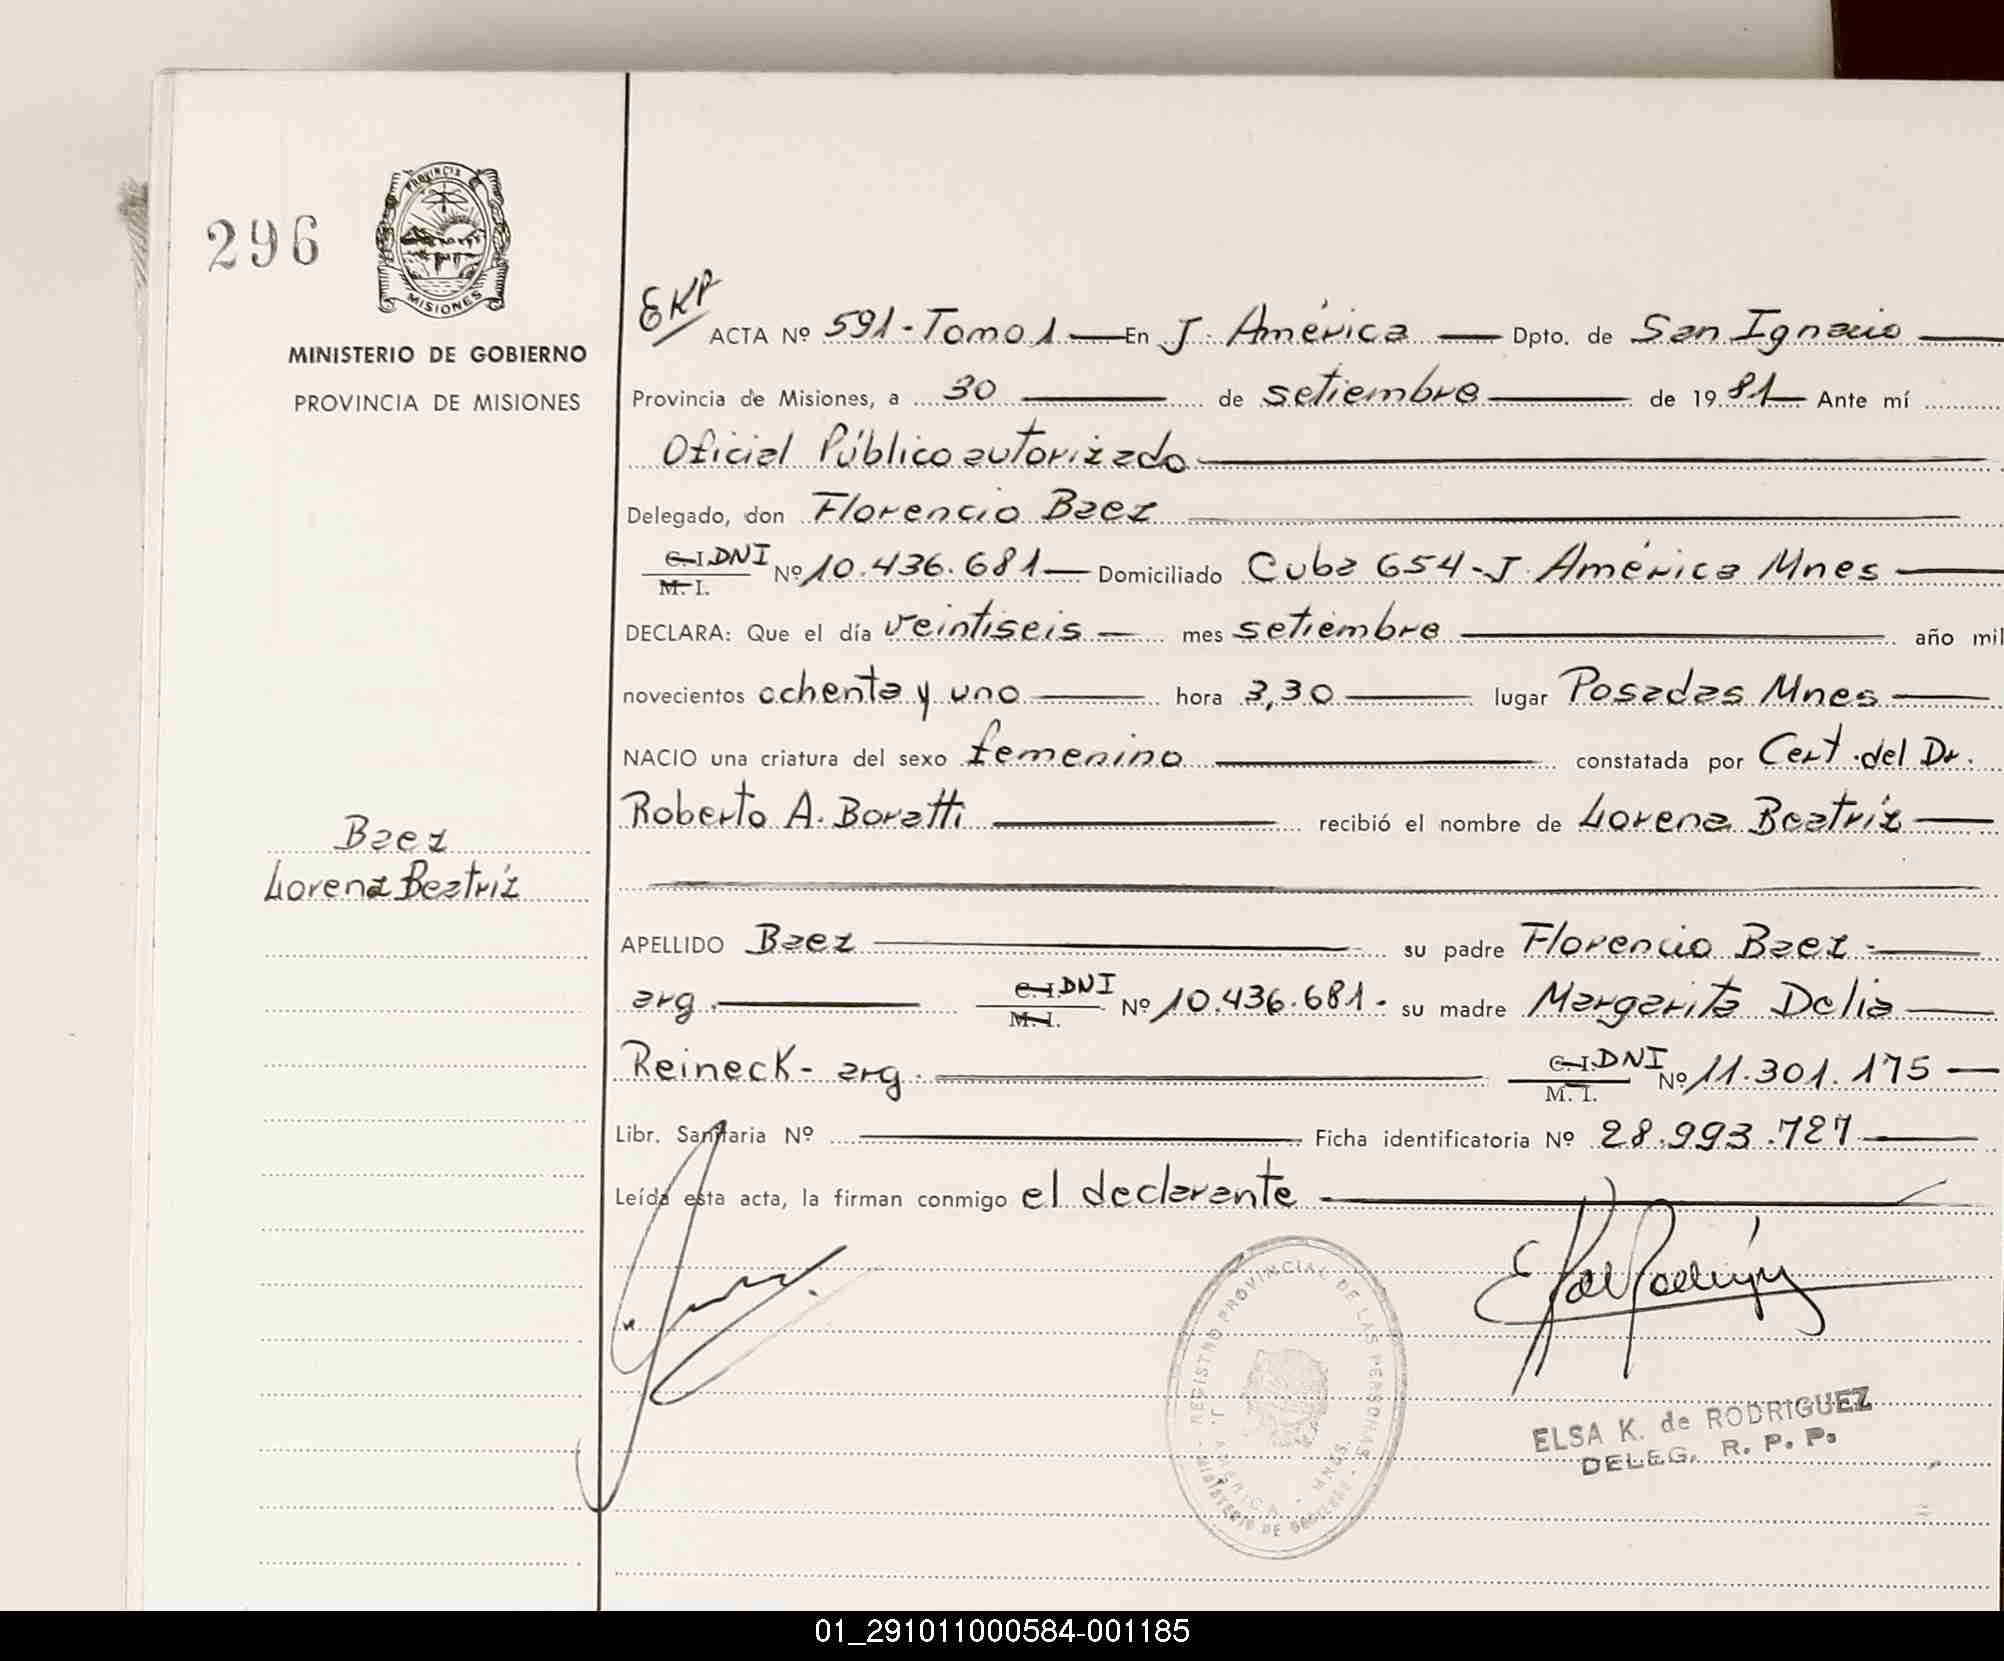 296
PROVINCIA
MISIONES
MINISTERIO DE GOBIERNO
PROVINCIA DE MISIONES
EKR
ACTA Nº 591-Tomo 1 — En J. América — Dpto. de San Ignacio
Provincia de Misiones, a 30 — de setiembre — de 1981 — Ante mí
Oficial Público autorizado
Delegado, don Florencio Baez
C.I. DNI
M. I. Nº 10.436.681 — Domiciliado Cuba 654 - J. América Mnes
DECLARA: Que el día veintiseis — mes setiembre — año mil
novecientos ochenta y uno — hora 3,30 — lugar Posadas Mnes
NACIO una criatura del sexo femenino — constatada por Cert. del Dr.
Roberto A. Boratti — recibió el nombre de Lorena Beatríz
Baez
Lorena Beatríz
APELLIDO Baez — su padre Florencio Baez
arg. — C.I. DNI
M. I. Nº 10.436.681 - su madre Margarita Delia
Reineck - arg. — C.I. DNI
M. I. Nº 11.301.175
Libr. Sanitaria Nº — Ficha identificatoria Nº 28.993.727
Leída esta acta, la firman conmigo el declarante
EKdeRodriguez
REGISTRO PROVINCIAL DE LAS PERSONAS
J. AMERICA - MNES.
MINISTERIO DE GOBIERNO
ELSA K. de RODRIGUEZ
DELEG. R. P. P.
01_291011000584-001185